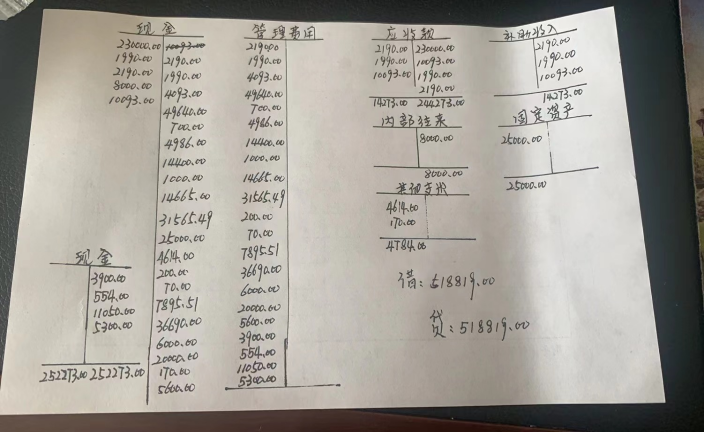 现金
230000.00 10093.00
1990.00 2190.00
2190.00 1990.00
8000.00 4093.00
10093.00 49640.00
700.00
4986.00
14400.00
1000.00
14665.00
31565.49
25000.00
4614.00
200.00
70.00
7895.51
36690.00
6000.00
20000.00
170.00
5600.00
现金
3900.00
554.00
11050.00
5300.00
252273.00 252273.00
管理费用
2190.00
1990.00
4093.00
49640.00
700.00
4986.00
14400.00
1000.00
14665.00
31565.49
200.00
70.00
7895.51
36690.00
6000.00
20000.00
5600.00
3900.00
554.00
11050.00
5300.00
应收款
2190.00 230000.00
1990.00 10093.00
10093.00 1990.00
2190.00
14273.00 244273.00
内部往来
8000.00
8000.00
4614.00
170.00
4784.00
补助收入
2190.00
1990.00
10093.00
14273.00
固定资产
25000.00
25000.00
借:518819.00
贷:518819.00